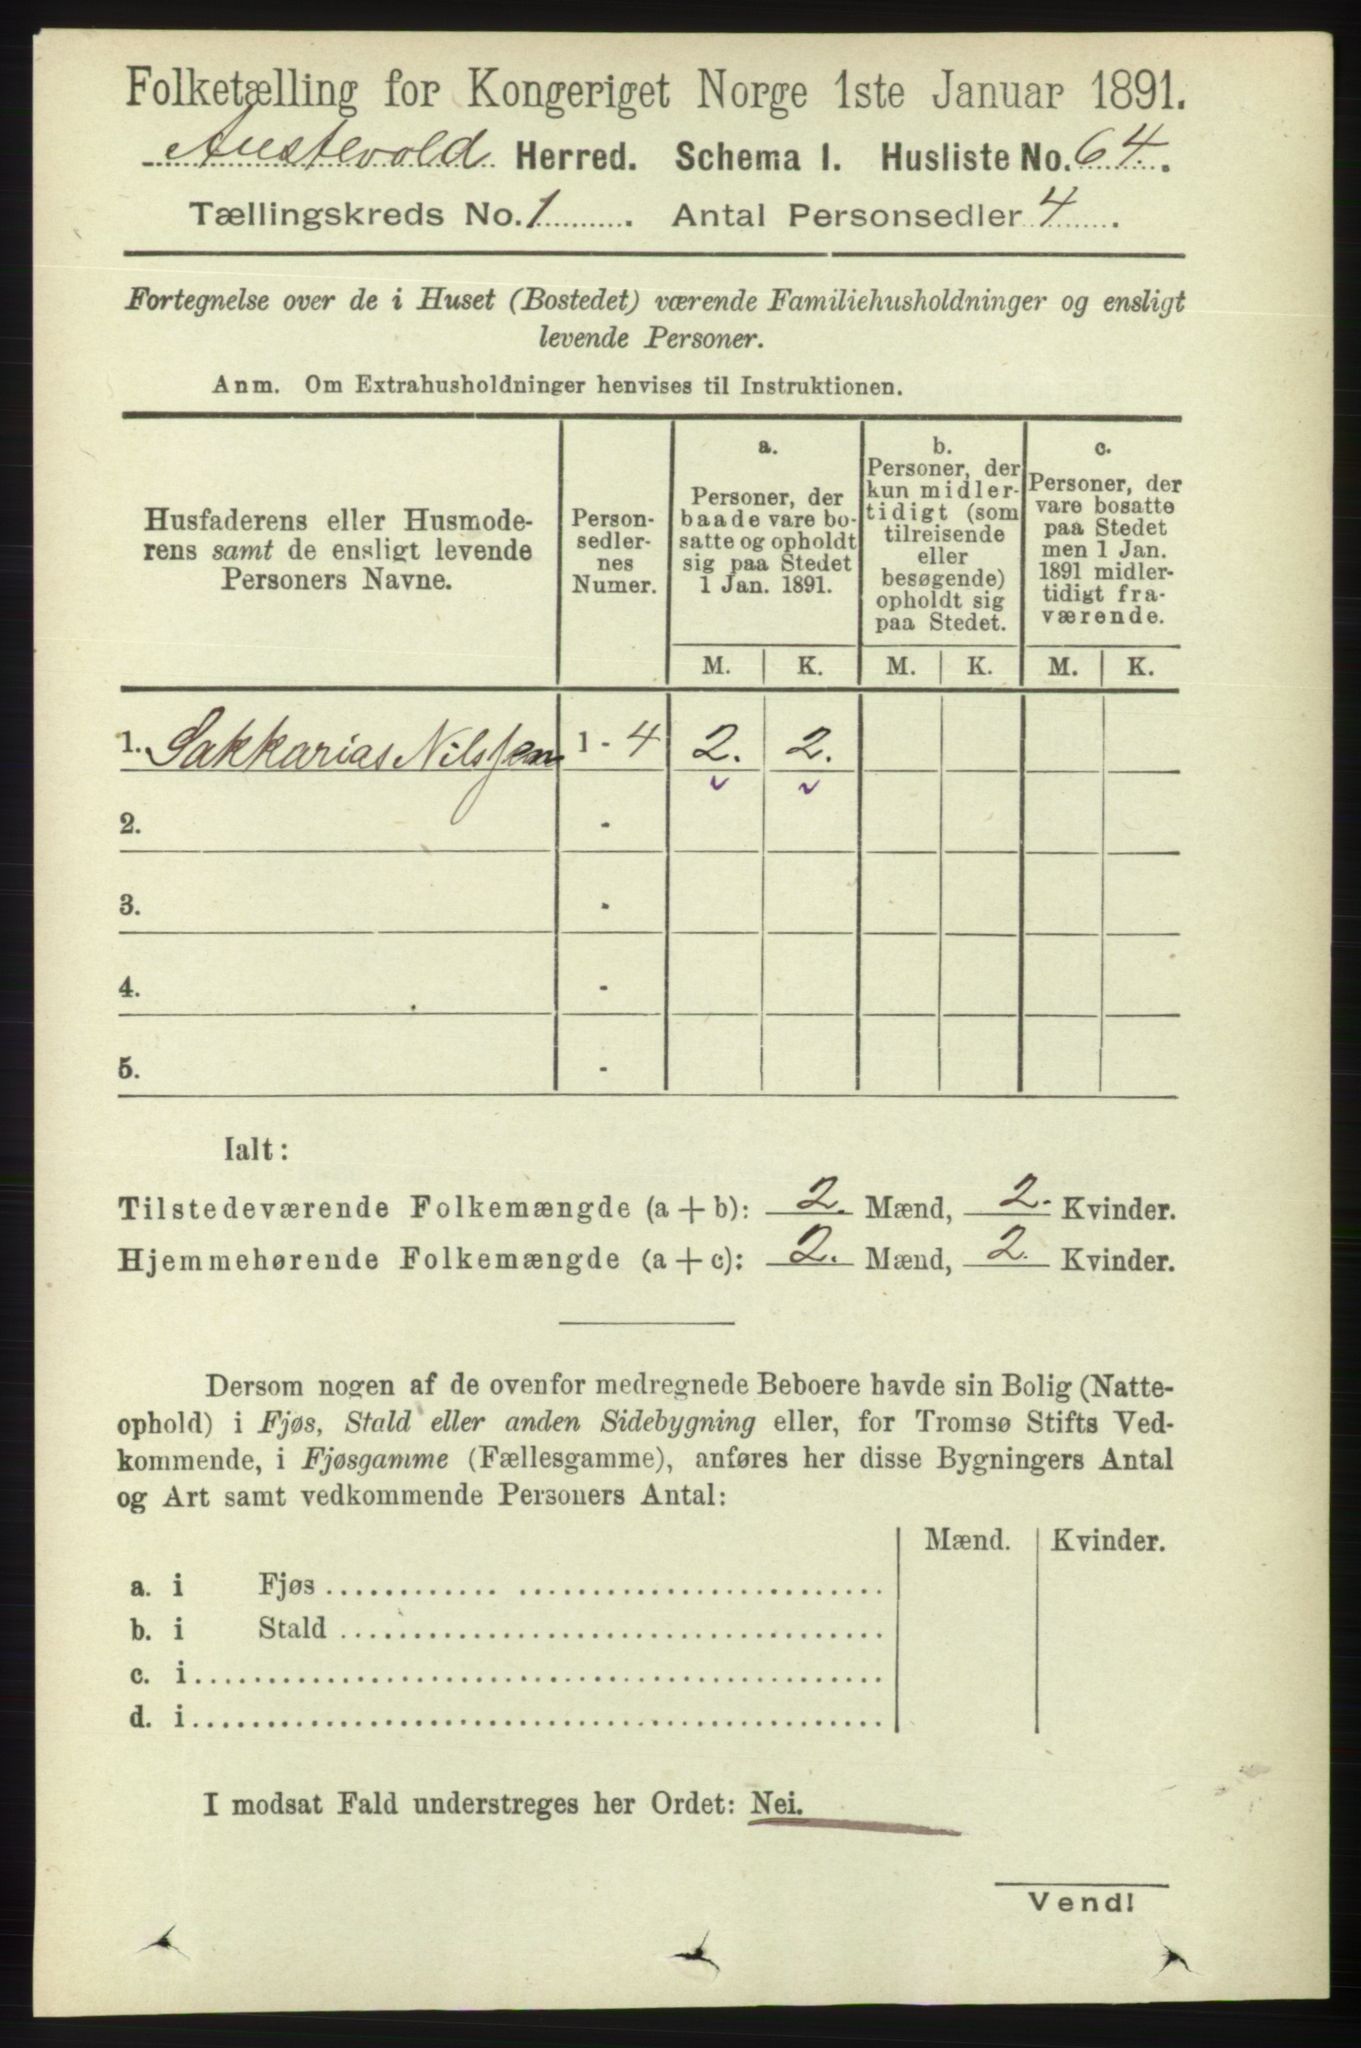 Folketælling for Kongeriget Norge 1ste Januar 1891.
Austevold Herred. Schema I. Husliste No. 64.
Tællingskreds No. 1. Antal Personsedler 4.
Fortegnelse over de i Huset (Bostedet) værende Familiehusholdninger og ensligt
levende Personer.
Anm. Om Extrahusholdninger henvises til Instruktionen.
Husfaderens eller Husmode-
rens samt de ensligt levende
Personers Navne.
Person-
sedler-
nes
Numer.
a.
Personer, der
baade vare bo-
satte og opholdt
sig paa Stedet
1 Jan. 1891.
b.
Personer, der
kun midler-
tidigt (som
tilreisende
eller
besøgende)
opholdt sig
paa Stedet.
c.
Personer, der
vare bosatte
paa Stedet
men 1 Jan.
1891 midler-
tidigt fra-
værende.
M. K. M. K. M. K.
1. Sakkarias Nilssen 1 - 4 2. 2.
2. -
3. -
4. -
5. -
Ialt:
Tilstedeværende Folkemængde (a + b): 2. Mænd, 2. Kvinder.
Hjemmehørende Folkemængde (a + c): 2. Mænd, 2. Kvinder.
Dersom nogen af de ovenfor medregnede Beboere havde sin Bolig (Natte-
ophold) i Fjøs, Stald eller anden Sidebygning eller, for Tromsø Stifts Ved-
kommende, i Fjøsgamme (Fællesgamme), anføres her disse Bygningers Antal
og Art samt vedkommende Personers Antal:
Mænd. Kvinder.
a. i Fjøs
b. i Stald
c. i
d. i
I modsat Fald understreges her Ordet: Nei.
Vend!